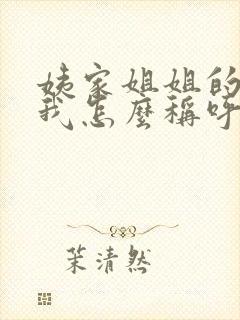 姨家姐姐的
我怎麼稱呼
茉清然